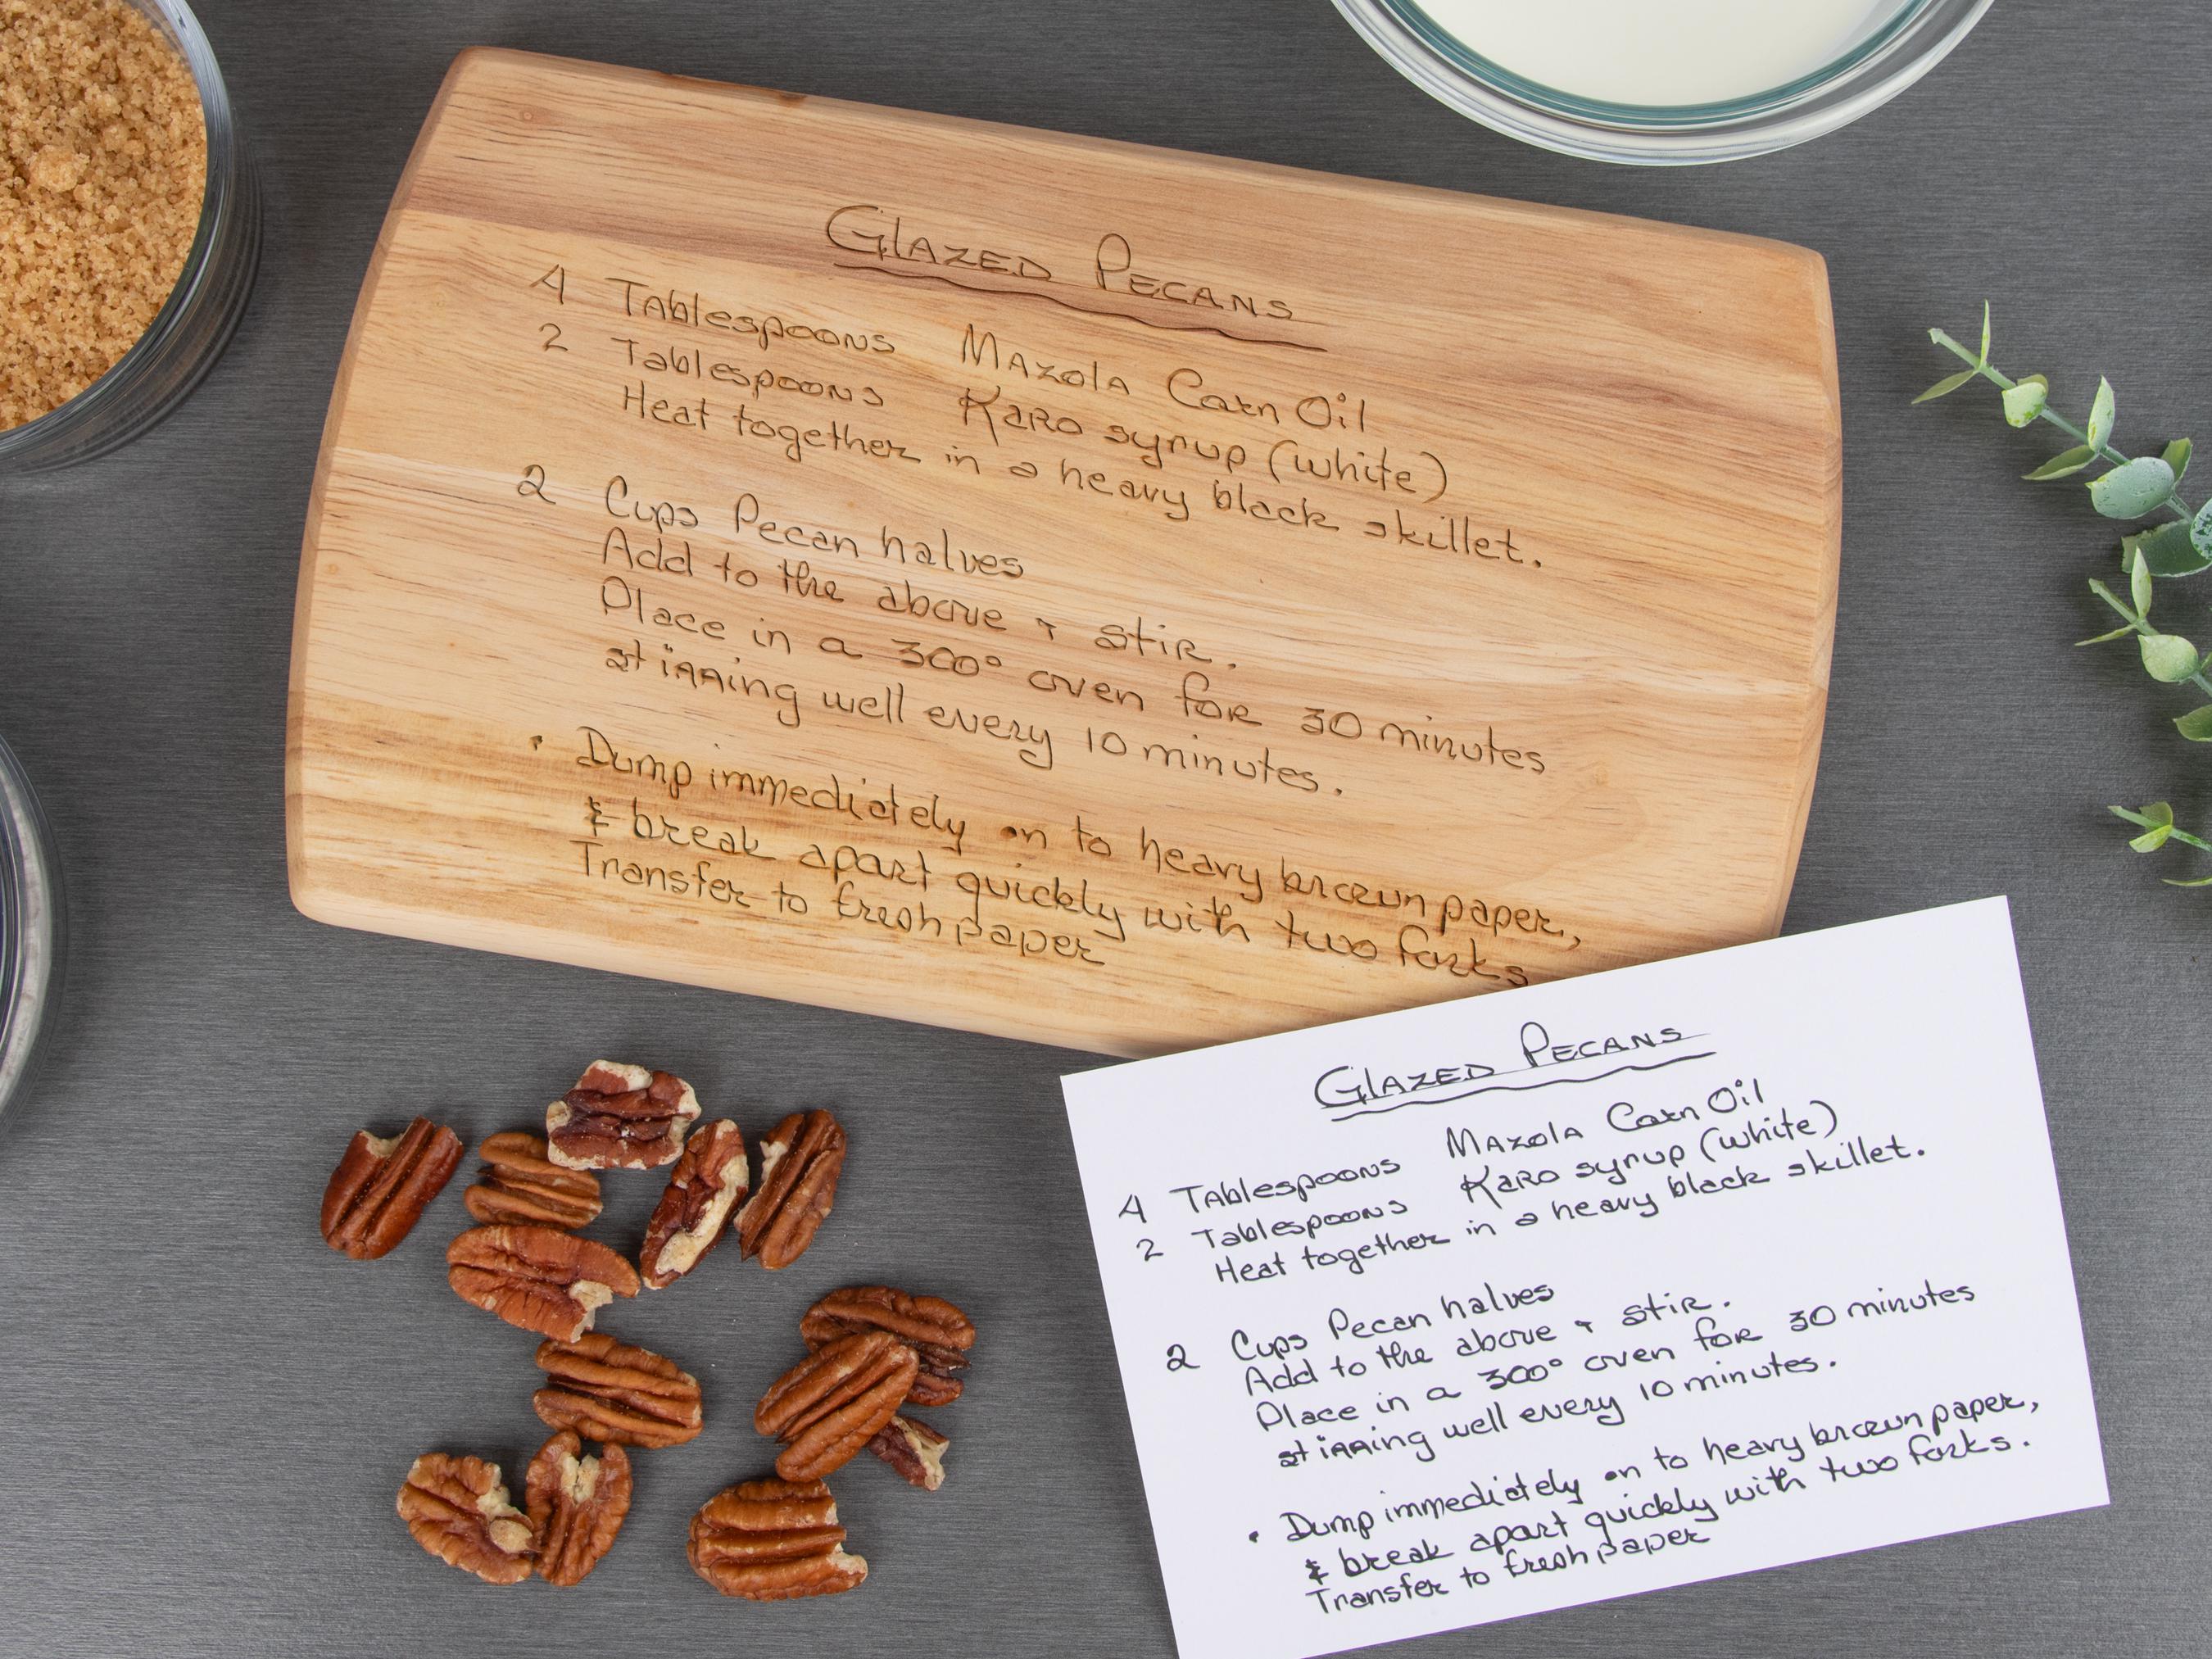 GLAZED PECANS
4 TAblespoons MAzolA Corn Oil
2 Tablespoons KARO syrup (white)
Heat together in a heavy black skillet.
2 Cups Pecan halves
Add to the above & stir.
Place in a 300° oven for 30 minutes
stirring well every 10 minutes.
• Dump immediately on to heavy brown paper,
& break apart quickly with two forks
Transfer to fresh paper
GLAZED PECANS
4 TAblespoons MAzolA Corn Oil
2 Tablespoons KARO syrup (white)
Heat together in a heavy black skillet.
2 Cups Pecan halves
Add to the above & stir.
Place in a 300° oven for 30 minutes
stirring well every 10 minutes.
• Dump immediately on to heavy brown paper,
& break apart quickly with two forks.
Transfer to fresh paper